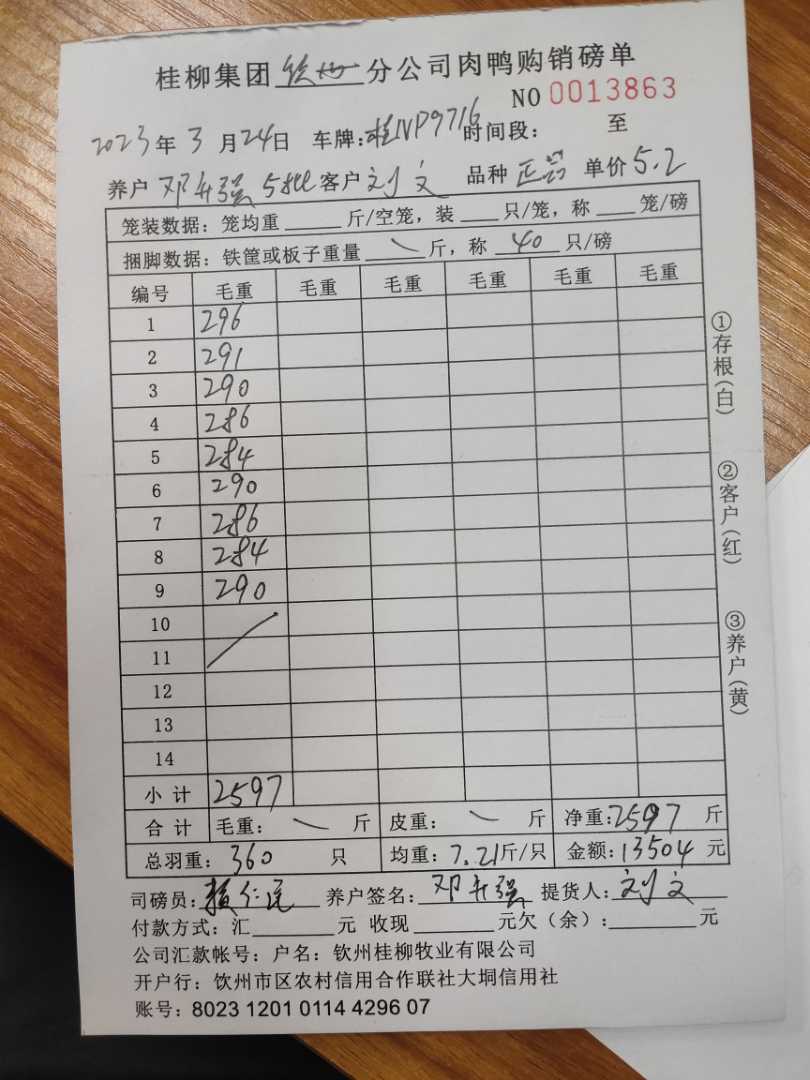 桂柳集团 钦州 分公司肉鸭购销磅单
NO 0013863
2023年3月24日 车牌:桂NP9716 时间段: 至
养户 邓升强 客户 刘文 品种 单价5.2
笼装数据:笼均重 斤/空笼,装 只/笼,称 笼/磅
捆脚数据:铁筐或板子重量 \ 斤,称 40 只/磅
编号 毛重 毛重 毛重 毛重 毛重 毛重
1 296
2 291
3 290
4 286
5 284
6 290
7 286
8 284
9 290
10
11
12
13
14
小计 2597
合计 毛重: \ 斤 皮重: \ 斤 净重:2597 斤
总羽重: 360 只 均重:7.21斤/只 金额:13504元
司磅员: 养户签名:邓升强 提货人:刘文
付款方式:汇 元 收现 元欠(余): 元
公司汇款帐号:户名:钦州桂柳牧业有限公司
开户行:钦州市区农村信用合作联社大垌信用社
账号:8023 1201 0114 4296 07
①存根(白)
②客户(红)
③养户(黄)